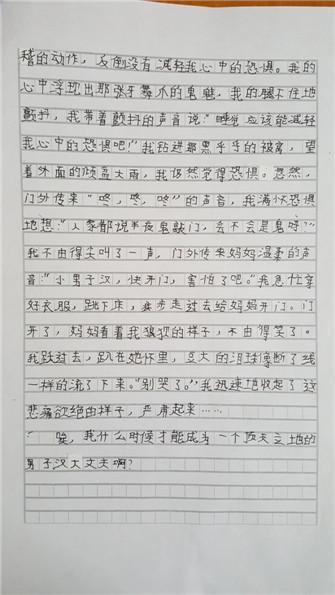 稽的动作，反倒没有减轻我心中的恐惧。我的
心中浮现出那张牙舞爪的鬼魅，我的腿不住地
颤抖，我带着颤抖的声音说“睡觉应该能减轻
我心中的恐惧吧！”我钻进那黑乎乎的被窝，望
着外面的倾盆大雨，我仍然觉得恐惧。忽然，
门外传来“咚，咚，咚”的声音，我满怀恐惧
地想：“人家都说半夜鬼敲门，会不会是鬼呀？”
我不由得尖叫了一声，门外传来妈妈温柔的声
音：“小男子汉，快开门，害怕了吧。”我急忙穿
好衣服，跳下床，奔步走过去给妈妈开门。门
开了，妈妈看着我狼狈的样子，不由得笑了。
我跃过去，趴在她怀里，豆大的泪珠像断了线
一样的流了下来。“别哭了。”我迅速地收起了这
悲痛欲绝的样子，严肃起来……
唉，我什么时候才能成为一个顶天立地的
男子汉大丈夫啊？